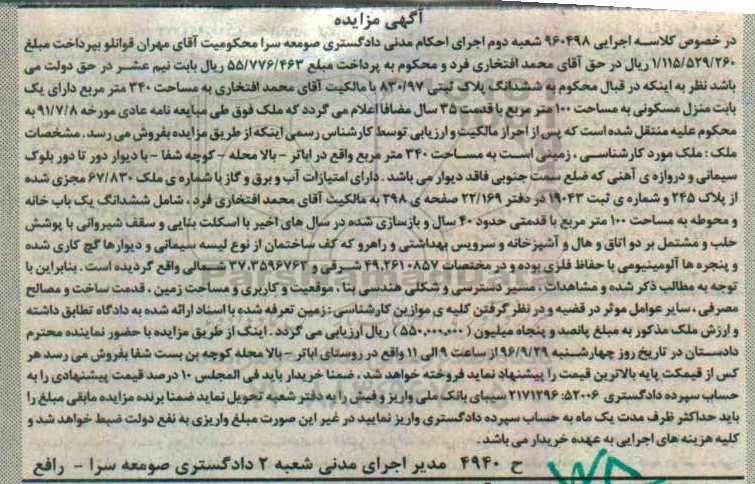 آگهی مزایده
در خصوص کلاسه اجرایی ۹۶۰۴۹۸ شعبه دوم اجرای احکام مدنی دادگستری صومعه سرا محکومیت آقای مهران قوانلو بپرداخت مبلغ
۱/۱۱۵/۵۲۹/۲۶۰ ریال در حق آقای محمد افتخاری فرد و محکوم به پرداخت مبلغ ۵۵/۷۷۶/۴۶۳ ریال بابت نیم عشر در حق دولت می
باشد نظر به اینکه در قبال محکوم به ششدانگ پلاک ثبتی ۸۳۰/۹۷ با مالکیت آقای محمد افتخاری به مساحت ۳۴۰ متر مربع دارای یک
بابت منزل مسکونی به مساحت ۱۰۰ متر مربع با قدمت ۳۵ سال مضافا اعلام می گردد که ملک فوق طی مبایعه نامه عادی مورخه ۹۱/۷/۸ به
محکوم علیه منتقل شده است که پس از احراز مالکیت و ارزیابی توسط کارشناس رسمی اینکه از طریق مزایده بفروش می رسد . مشخصات
ملک : ملک مورد کارشناسی ، زمینی است به مساحت ۳۴۰ متر مربع واقع در اباتر - بالا محله - کوچه شفا - با دیوار دور تا دور بلوک
سیمانی و دروازه ی آهنی که ضلع سمت جنوبی فاقد دیوار می باشد . دارای امتیازات آب و برق و گاز با شماره ی ملک ۶۷/۸۳۰ مجزی شده
از پلاک ۲۴۵ و شماره ی ثبت ۱۹۰۴۳ در دفتر ۲۲/۱۶۹ صفحه ی ۳۹۸ به مالکیت آقای محمد افتخاری فرد ، شامل ششدانگ یک باب خانه
و محوطه به مساحت ۱۰۰ متر مربع با قدمتی حدود ۴۰ سال و بازسازی شده در سال های اخیر با اسکلت بنایی و سقف شیروانی با پوشش
حلب و مشتمل بر دو اتاق و هال و آشپزخانه و سرویس بهداشتی و راهرو که کف ساختمان از نوع لیسه سیمانی و دیوارها گچ کاری شده
و پنجره ها آلومینیومی با حفاظ فلزی بوده و در مختصات ۴۹.۲۶۱۰۸۵۷ شرقی و ۳۷.۳۵۹۶۷۶۲ شمالی واقع گردیده است . بنابراین با
توجه به مطالب ذکر شده و مشاهدات ، مسیر دسترسی و شکلی هندسی بنا ، موقعیت و کاربری و مساحت زمین ، قدمت ساخت و مصالح
مصرفی ، سایر عوامل موثر در قضیه و در نظر گرفتن کلیه ی موازین کارشناسی : زمین تعرفه شده با اسناد ارائه شده به دادگاه تطابق داشته
و ارزش ملک مذکور به مبلغ پانصد و پنجاه میلیون ( ۵۵۰.۰۰۰.۰۰۰ ) ریال ارزیابی می گردد . اینک از طریق مزایده با حضور نماینده محترم
دادستان در تاریخ روز چهارشنبه ۹۶/۹/۲۹ از ساعت ۹ الی ۱۱ واقع در روستای اباتر - بالا محله کوچه بن بست شفا بفروش می رسد هر
کس از قیمکت پایه بالاترین قیمت را پیشنهاد نماید فروخته خواهد شد ، ضمنا خریدار باید فی المجلس ۱۰ درصد قیمت پیشنهادی را به
حساب سپرده دادگستری ۵۲۰۰۶: ۲۱۷۱۲۹۶ سیبای بانک ملی واریز و فیش را به دفتر شعبه تحویل نماید ضمنا برنده مزایده مابقی مبلغ را
باید حداکثر ظرف مدت یک ماه به حساب سپرده دادگستری واریز نمایید در غیر این صورت مبلغ واریزی به نفع دولت ضبط خواهد شد و
کلیه هزینه های اجرایی به عهده خریدار می باشد .
ح ۴۹۴۰ مدیر اجرای مدنی شعبه ۲ دادگستری صومعه سرا - رافع